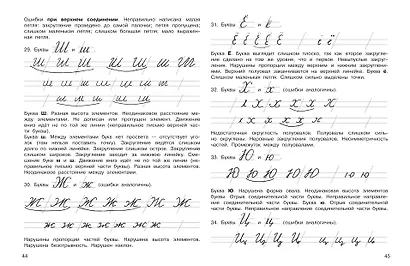 Ошибки при верхнем соединении. Неправильно написана малая
петля: закругление проведено до самой палочки; петля пропущена;
слишком маленькая петля; слишком большая петля; мало выражен-
ная петля.
29. Буквы Ш и ш.
Буква Ш. Разная высота элементов. Неодинаковое расстояние ме-
жду элементами. Не дописан или пропущен элемент. Движение
вниз идёт не по той же линии (неправильное письмо верхней час-
ти буквы).
Буква ш. Между элементами букв нет просвета — отсутствует уго-
лок (так нельзя поставить точку). Закругление ведётся слишком
долго по нижней линейке. Закругление острое. Закругление сделано
слишком широкое. Закругление заходит за нижнюю линейку. Сме-
шение букв ш и и. Движение вниз идёт не по той же линии (не-
правильное письмо верхней части буквы). Разная высота петель.
Неодинаковое расстояние между элементами.
30. Буквы Ж и ж (ошибки аналогичны).
Нарушены пропорции частей буквы. Нарушена высота элементов.
Нарушена безотрывность. Нарушен наклон.
44
31. Буквы Ё и ё.
Буква Ё. Буква выглядит слишком плоско, так как второе закругле-
ние сделано на том же уровне, что и первое. Невыпуклые закруг-
ления. Нарушены пропорции между верхним и нижним закруглени-
ями. Верхний полуовал заканчивается на верхней линейке. Буква ё.
Слишком маленькая петля. Слишком сильно выделены точки.
32. Буквы Х и х (ошибки аналогичны).
Недостаточная округлость полуовалов. Полуовалы слишком силь-
но округлены. Неровные закругления полуовалов. Несимметричность
частей. Промежуток между полуовалами.
33. Буквы Ю и ю.
Буква Ю. Нарушена форма овала. Неодинаковая высота элементов
буквы. Отрыв соединительной части буквы. Неправильное направле-
ние соединительной части буквы. Буква ю. Отрыв соединительной
части буквы. Неправильное направление соединительной части буквы.
34. Буквы Ц и ц (ошибки аналогичны).
45